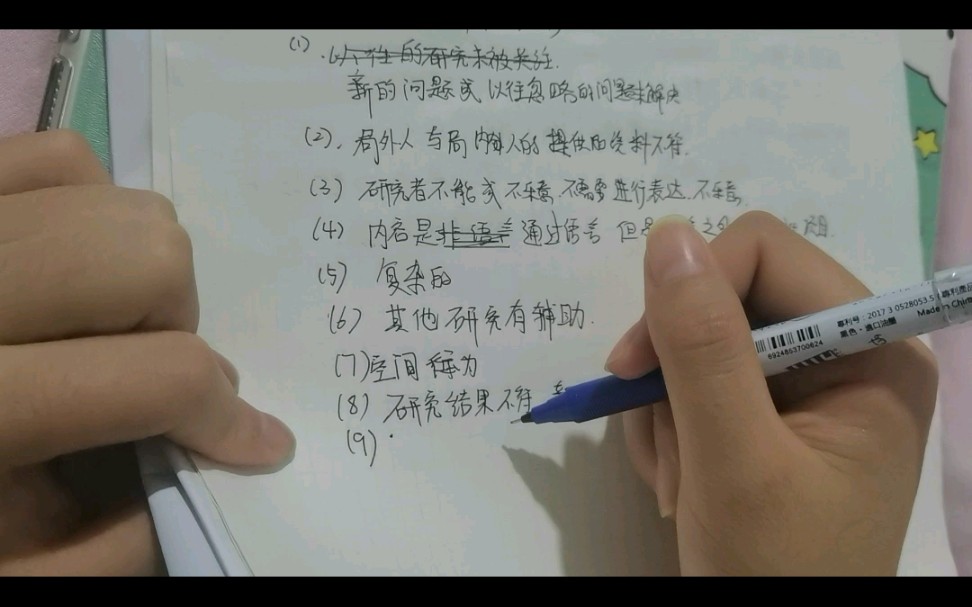 (1)
个性的研究未被关注.
新的问题或以往忽略的问题未解决
(2). 局外人与局内人的提供的资料不符.
(3) 研究者不能或不乐意、不需要进行表达.不乐意
(4) 内容是非语言通过语言 但是
(5) 复杂的
(6) 其他研究有辅助.
(7)空间称为
(8) 研究结果不符
(9)
專利号:2017 3 0528053.5
專利產品
黑色·進口油墨
Made in China
6924803700624